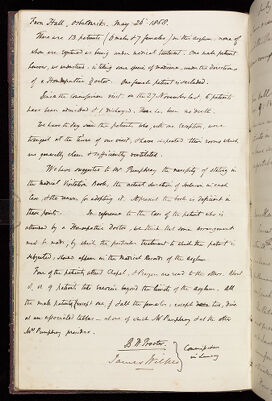 Tcon Hall, Oswestry. May 26th 1868.
There are 13 patients (6 male & 7 females) in this asylum, none of
whom are registered as being under medical treatment. One male patient
however, we understand is taking some species of medicine, under the directions
of a Homœopathic Doctor. One female patient is secluded.
Since the Commission visit on the 27 November last, 2 patients
have been admitted & 1 discharged. There has been no death.
We have to day seen the patients who, with an exception, were
tranquil at the time of our visit, & have inspected their rooms which
are generally clean & sufficiently ventilated.
We have suggested to Mr Pumphrey the necessity of stating in
the Medical Visitation Book, the actual duration of seclusion in each
case, & the reason for adopting it. At present the book is deficient in
these points. In reference to the case of the patient who is
attended by a Homœopathic Doctor, we think that some arrangement
must be made, by which the particular treatment to which the patient is
subjected, should appear in the Medical Records of the asylum.
Four of the patients attend Chapel, & Prayers are read to the others. About
8 or 9 patients take exercise beyond the limits of the asylum. All
the male patients (except one) & all the females, except two, dine
at an associated table — at one of which Mr Pumphrey & at the other
Mrs Pumphrey presides.
B W Procter
James Wilkes
Commissioners
in Lunacy